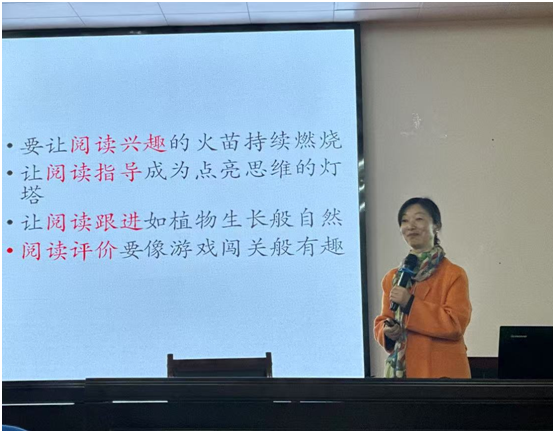 • 要让阅读兴趣的火苗持续燃烧
• 让阅读指导成为点亮思维的灯
塔
• 让阅读跟进如植物生长般自然
• 阅读评价要像游戏闯关般有趣